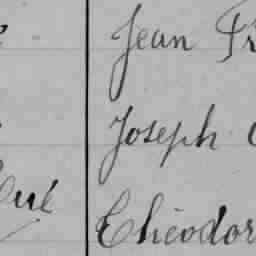 Jean Fr
Joseph
Théodor